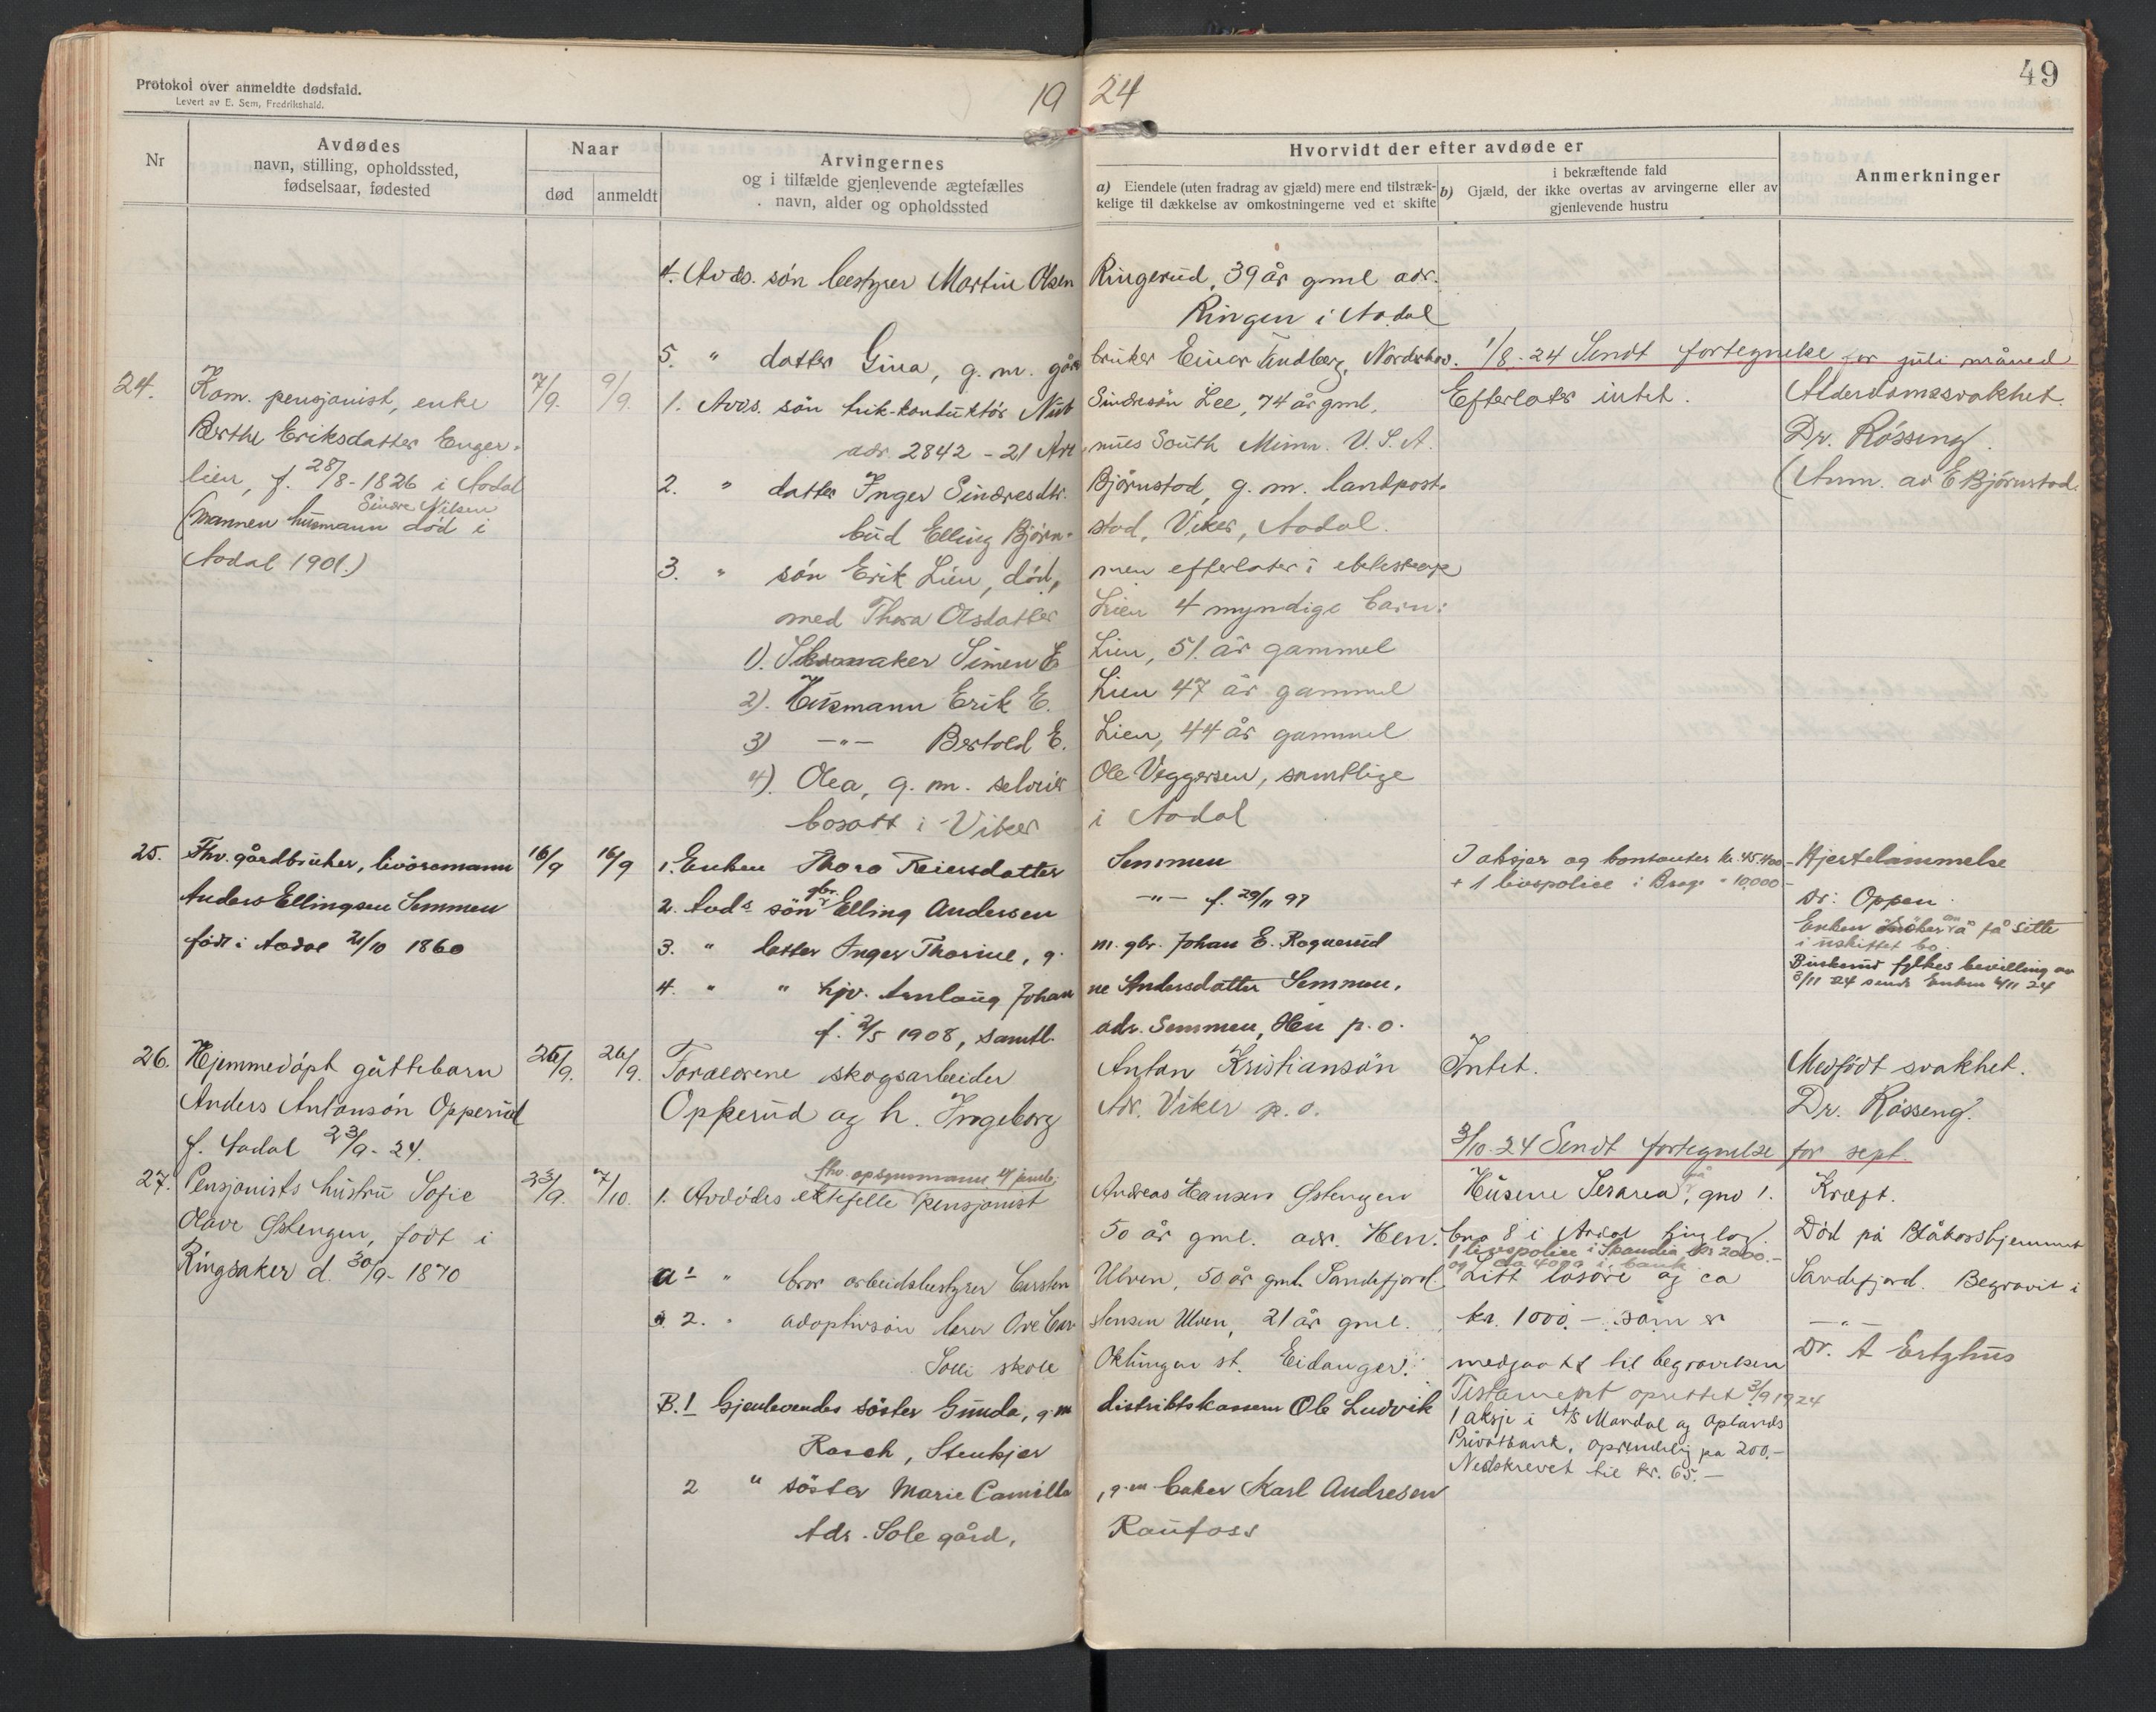 Protokol over anmeldte dødsfald.
Levert av E. Sem, Fredrikshald.
19 24
49
Nr
Avdødes
navn, stilling, opholdssted,
fødselsaar, fødested
Naar
død
anmeldt
Arvingernes
og i tilfælde gjenlevende ægtefælles
navn, alder og opholdssted
Hvorvidt der efter avdøde er
a) Eiendele (uten fradrag av gjæld) mere end tilstræk-
kelige til dækkelse av omkostningerne ved et skifte
i bekræftende fald
b) Gjæld, der ikke overtas av arvingerne eller av
gjenlevende hustru
Anmerkninger
4. Avds. søn bestyrer Martin Olsen Ringerud, 39 år gml adr.
Ringen i Aadal
5. " datter Gina, g. m. gård bruker Einar Nordrehov. 1/8-24 Sendt fortegnelse for juli måned
24. Kom. pensjonist, enke 7/9. 9/9. 1. Avds. søn trik-konduktör Nub Sindresön Lee, 74 år gml. Efterlater intet. Alderdomssvakhet.
Berthe Eriksdatter Enger- adr. 2842 - 21 Ave nues South Minn. U.S.A. Dr. Rössing.
lien, f. 28/8-1826 i Aadal 2. " datter Inger Sindresdtr. Björnstad, g. m. landpost- (Anm. av E Björnstad.
Sindre Nilsen
(mannen husmann död i bud Elling Björn- stad, Viker, Aadal.
Aadal 1901.) 3. " sön Erik Lien, död, men efterlater i ekteskap
med Thora Olsdatter Lien 4 myndige barn:
1). Skomaker Simen E Lien, 51 år gammel
2). Husmann Erik E. Lien 47 år gammel
3) -"- Bertold E. Lien, 44 år gammel
4). Olea, g. m. selveier Ole Veggersen, samtlige
bosatt i Viker i Aadal
25. Fhv. gårdbruker, livöresmann 16/9 16/9 1. Enken Thora Reiersdatter Semmen 7 aksjer og kontanter kr. 45.400 - Hjertelammelse
+ 1 livspolice i Brage " 10,000 -
Anders Ellingsen Semmen 2. Avds sön gbr. Elling Andersen -"- f. 29/11 97 Dr: Oppen.
født i Aadal 21/10 1860 3. " datter Inger Thorine, g. m. gbr. Johan E. Rognerud Enken ansöker å få sitte
i uskiftet bo.
4. " " hjv. Aslaug Johan ne Andersdatter Semmen, Buskerud fylkes bevilling av
3/11 24 sendt Enken 4/11 24
f. 2/5 1908, samtl. adr. Semmen, Hen p.o.
26. Hjemmedöpt guttebarn 25/9. 26/9. Foreldrene skogsarbeider Anton Kristiansön Intet. Medfödt svakhet.
Anders Antonsön Opperud Opperud og h. Ingeborg Adr. Viker p.o. Dr. Rösseng.
f. Aadal 23/9-24. 3/10-24 Sendt fortegnelse for sept.
27. Pensjonists hustru Sofie 23/9. 7/10. 1. Avdödes ektefelle pensjonist Andreas Hansen Østengen Husene, gno 1. Kræft.
fhv. opsynsmann
Olave Østengen, født i 50 år gml. adr. Hen. bno 8 i Aadal tinglag. Död på Blåkorshjemmet
1 livspolice i Skandia kr 2000.-
og ca 4000 i bank
Ringsaker d. 30/9-1870 a1 " bror arbeidsbestyrer Carsten Ulven, 50 år gml. Sandefjord. Litt lösöre og ca Sandefjord. Begravet i
a 2. " adoptivsön lærer Ove Car stensen Ulven, 21 år gml. kr. 1000.- som er -"-
Solli skole Oklungen st. Eidanger. medgaatt til begravelsen Dr. A
B.1 Gjenlevendes søster Gunda, g.m distriktskasserer Ole Ludvik Testament oprettet 3/9 1924
Rasch, Stenkjer 1 aksje i A/S Mandal og Oplands
Privatbank, oprindelig på 200,-
Nedskrevet til kr. 65.-
2 " söster Marie Camilla, g.m baker Karl Andresen
Adr. Sole gård, Raufoss